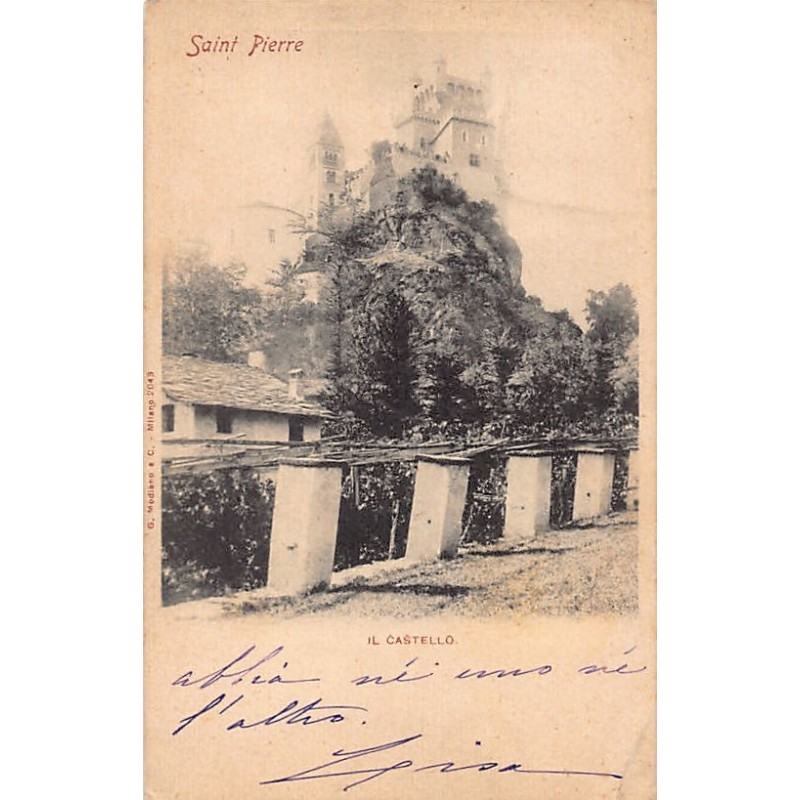 Saint Pierre
G. Modiano e C. - Milano 2043
IL CASTELLO.
abbia né uno né
l'altro.